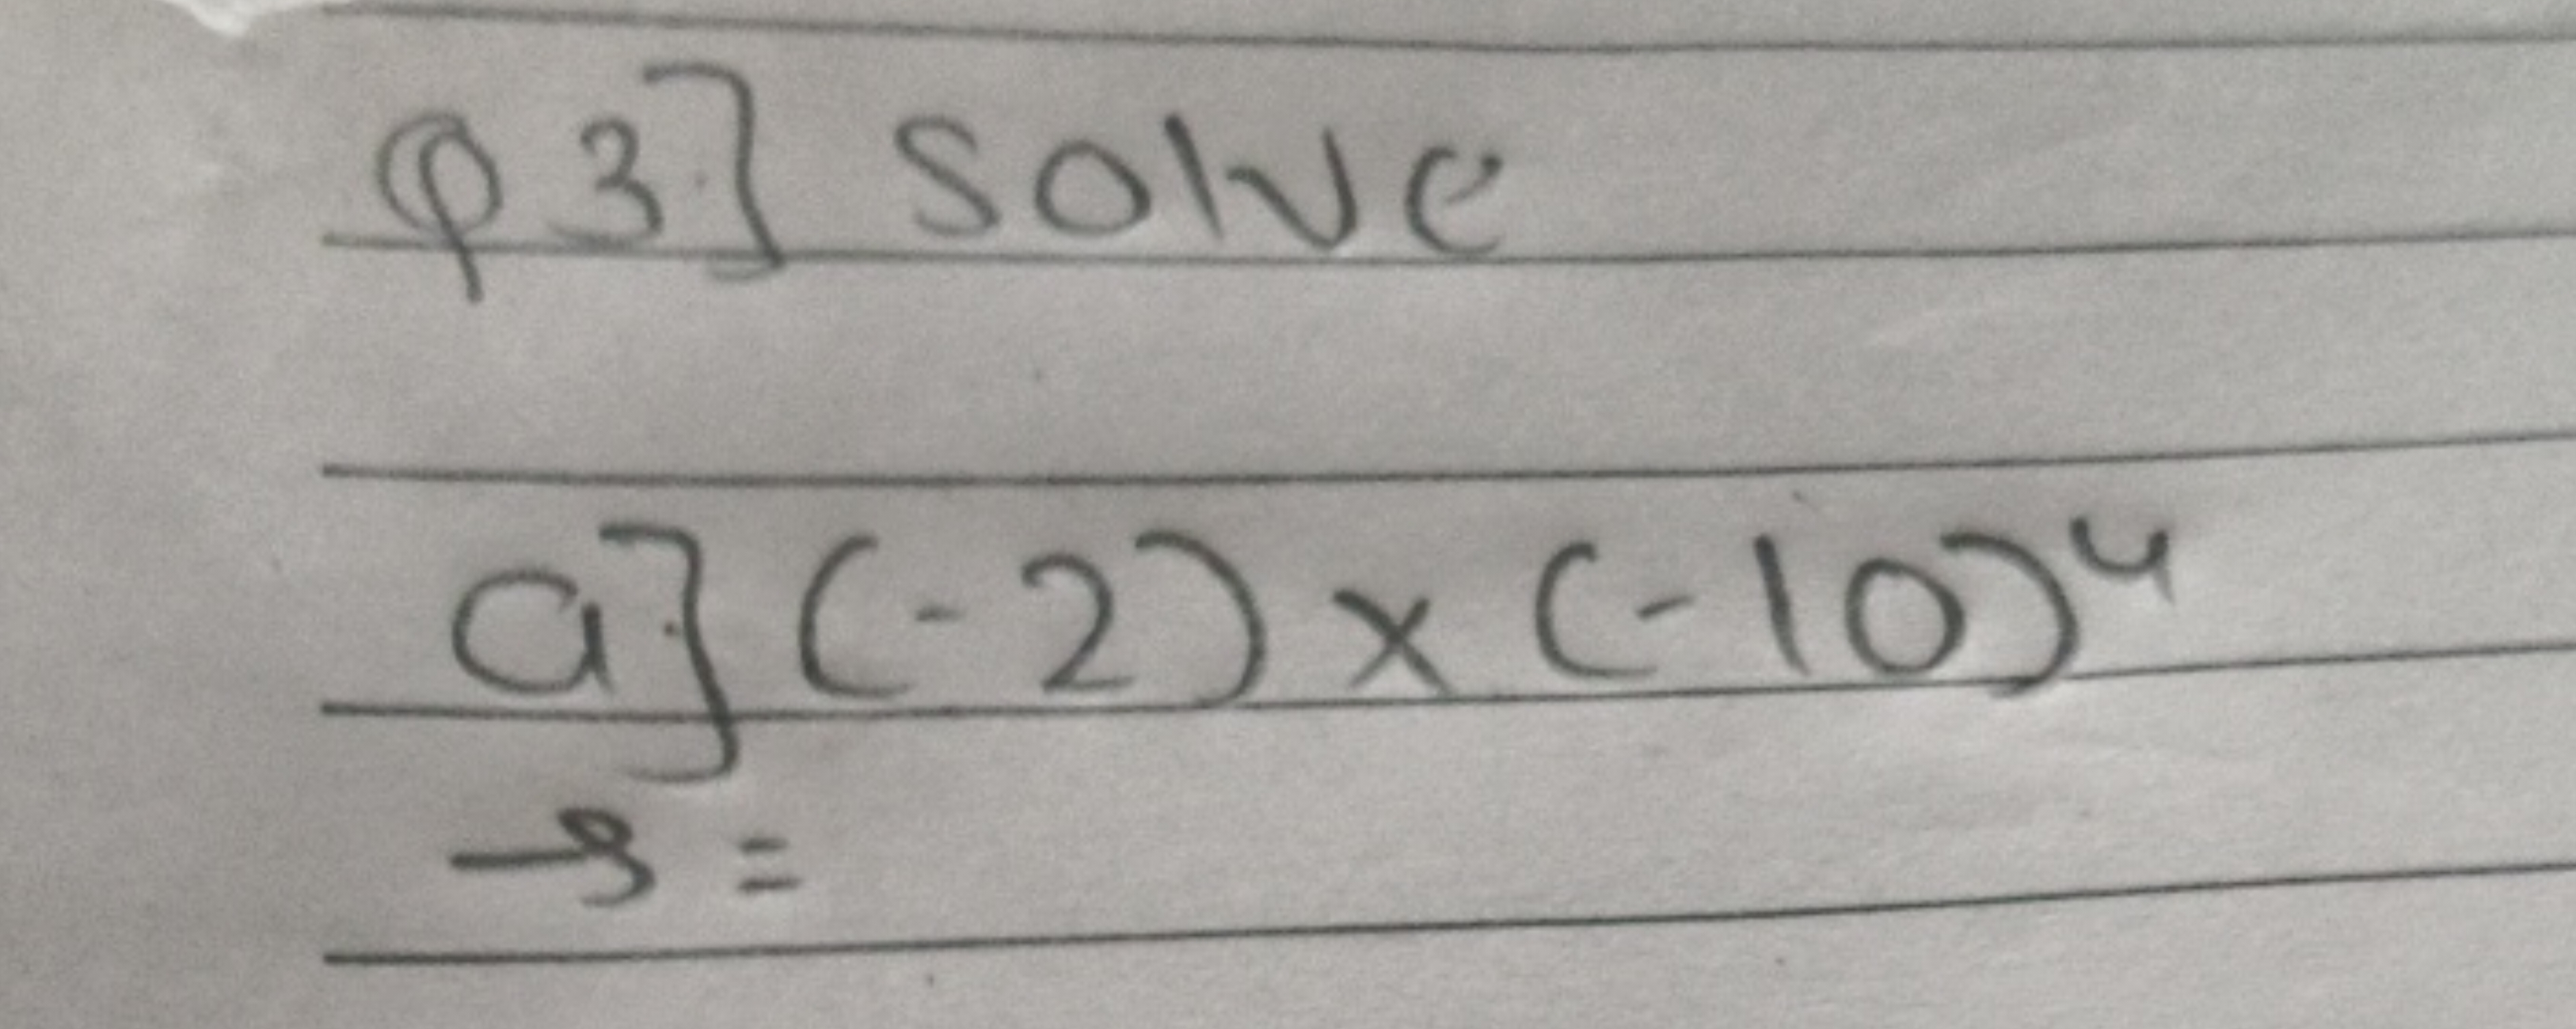 Q3] solve
a] (-2) x (-10)⁴
→ =